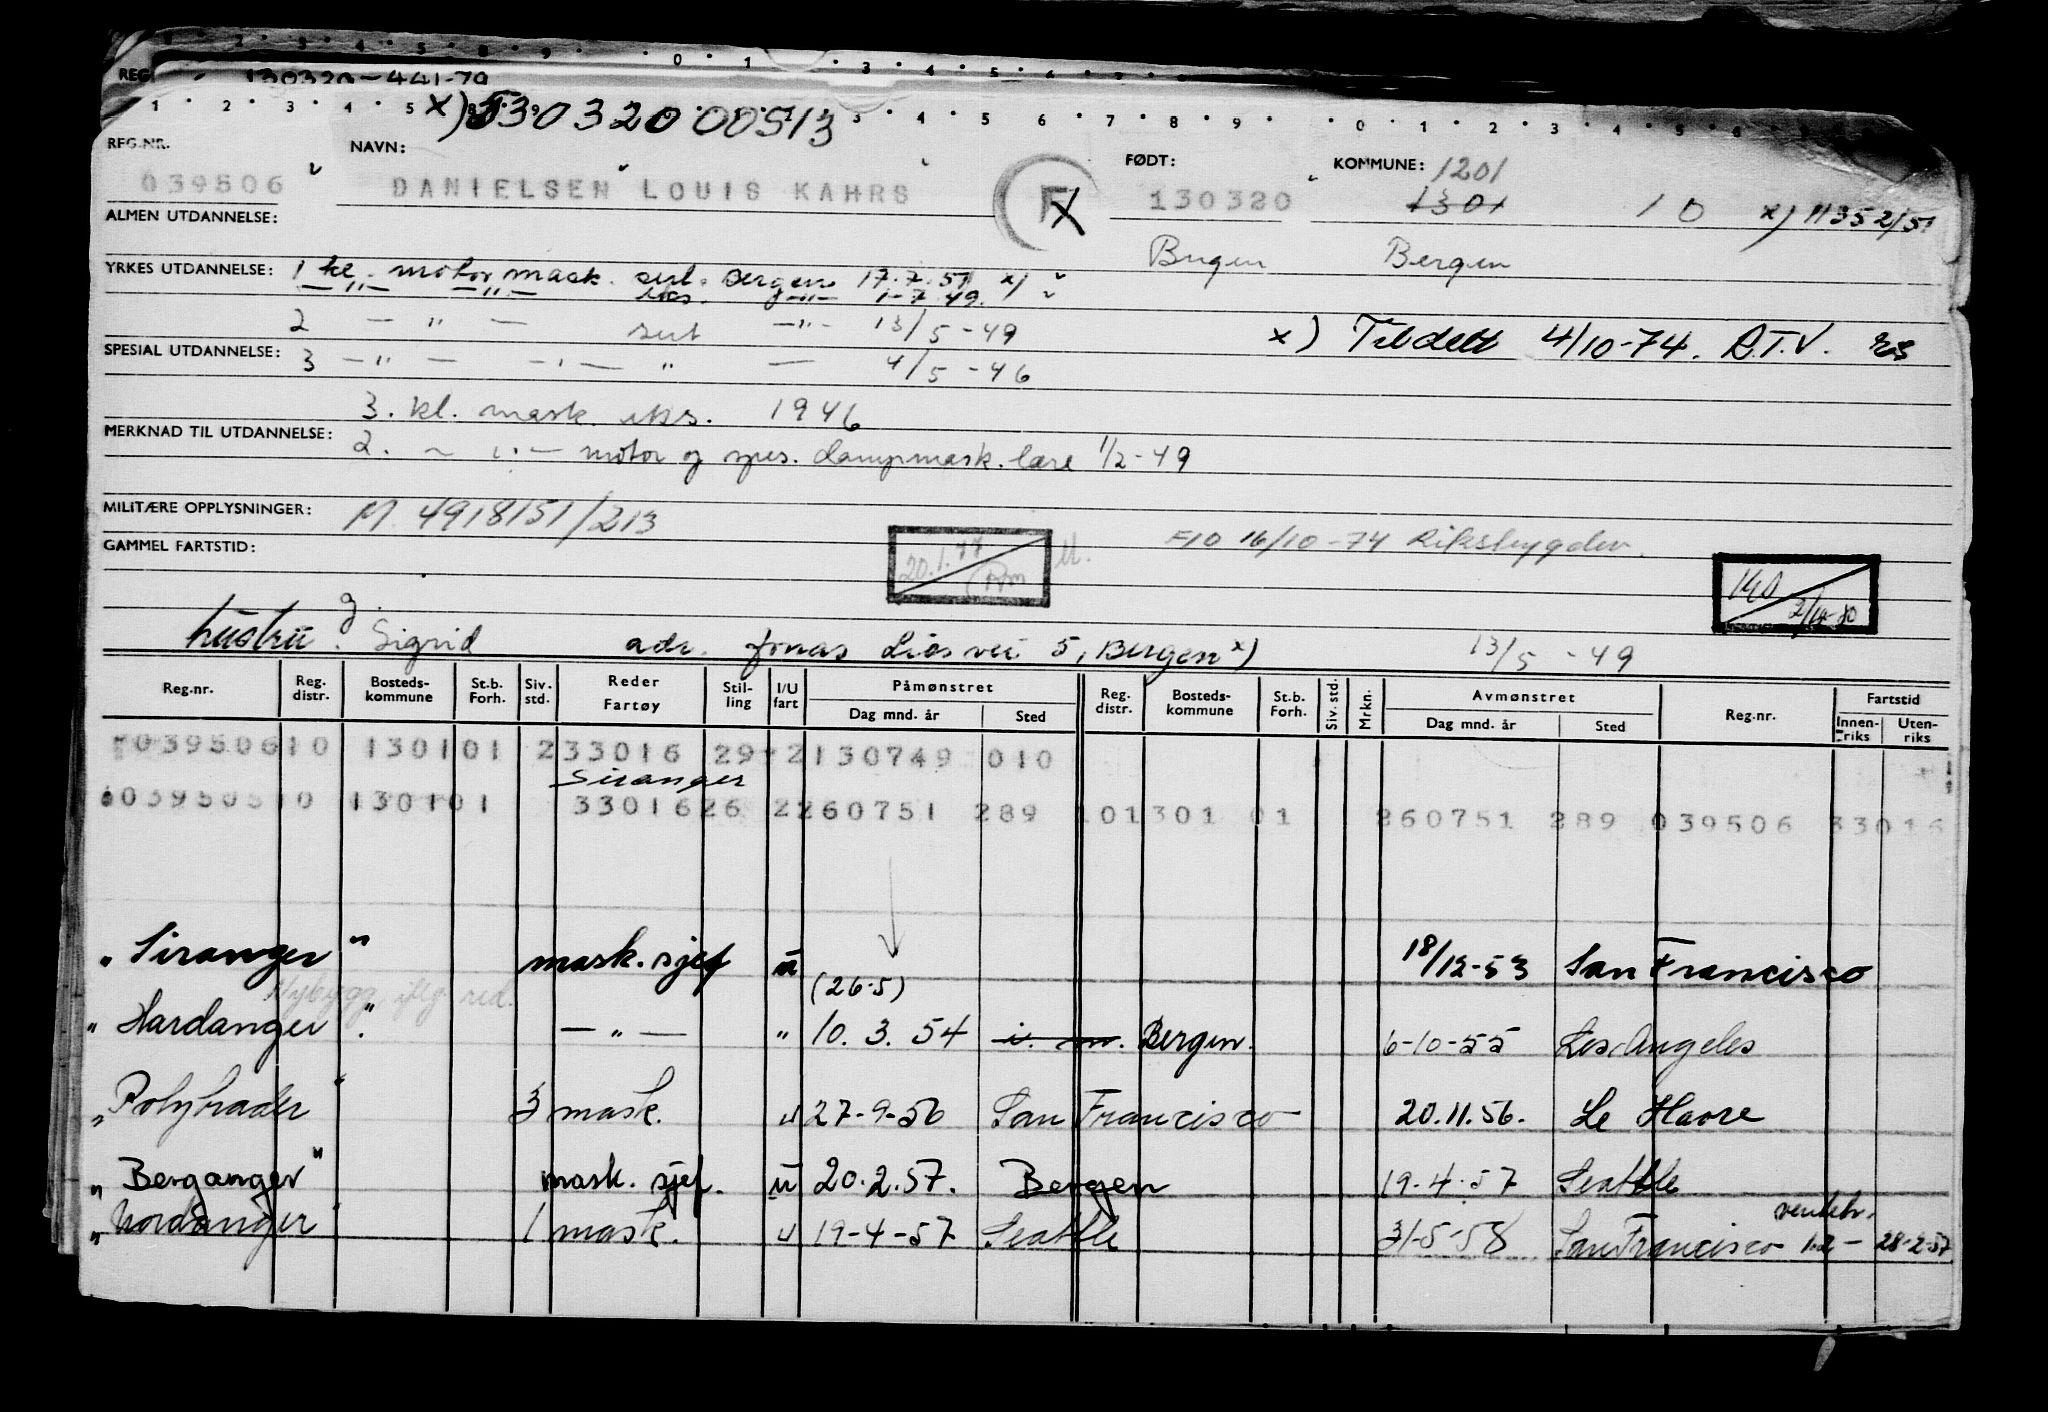 REG. 130320-441-79
x) 13032000513
REG.NR. NAVN: FØDT: KOMMUNE: 1201
039506 DANIELSEN LOUIS KAHRS F 130320 1301 10 x) 11352/51
ALMEN UTDANNELSE: Bergen Bergen
YRKES UTDANNELSE: 1 kl. motor mask. sert. Bergen 17.7.51 x)
— " — — " — eks. — " — 1-7 49.
2 — " — sert — " — 13/5-49
x) Tildelt 4/10-74. R.T.V.
SPESIAL UTDANNELSE: 3 — " — — " — " — 4/5-46
3. kl. mask. eks. 1946
MERKNAD TIL UTDANNELSE: 2. — " — motor og spes. dampmask. lære 1/2-49
MILITÆRE OPPLYSNINGER: M. 4918151/213
F10 16/10-74 Rikstrygden.
GAMMEL FARTSTID: 20.1.77
140 2/10-80
hustru: g. Sigrid adr. Jonas Lies vei 5, Bergen x) 13/5-49
Reg.nr. Reg. distr. Bosteds-kommune St.b. Forh. Siv. std. Reder Fartøy Stil-ling I/U fart Påmønstret Dag mnd. år Sted Reg. distr. Bosteds-kommune St.b. Forh. Siv. std. Mrkn. Avmønstret Dag mnd. år Sted Reg.nr. Fartstid Innen-riks Uten-riks
039506 10 1301 01 2 33016 29 2 130749 010
Siranger
039505 10 1301 01 33016 26 2 260751 289 10 1301 01 260751 289 039506 33016
"Siranger" mask. sjef u 18/12-53 San Francisco
Nybygg, iflg. red. (26-5)
"Hardanger". — " — " 10. 3. 54 i. m. Bergen. 6-10-55 Los Angeles
"Polytrader" 3 mask. u 27-9-56 San Francisco 20.11.56. Le Havre
"Berganger" mask. sjef. u 20.2.57. Bergen 19-4-57 Seattle
"Nordanger" 1 mask. u 19-4-57 Seattle 31-5-58 San Francisco ventetr. 1.2 - 28-2-57